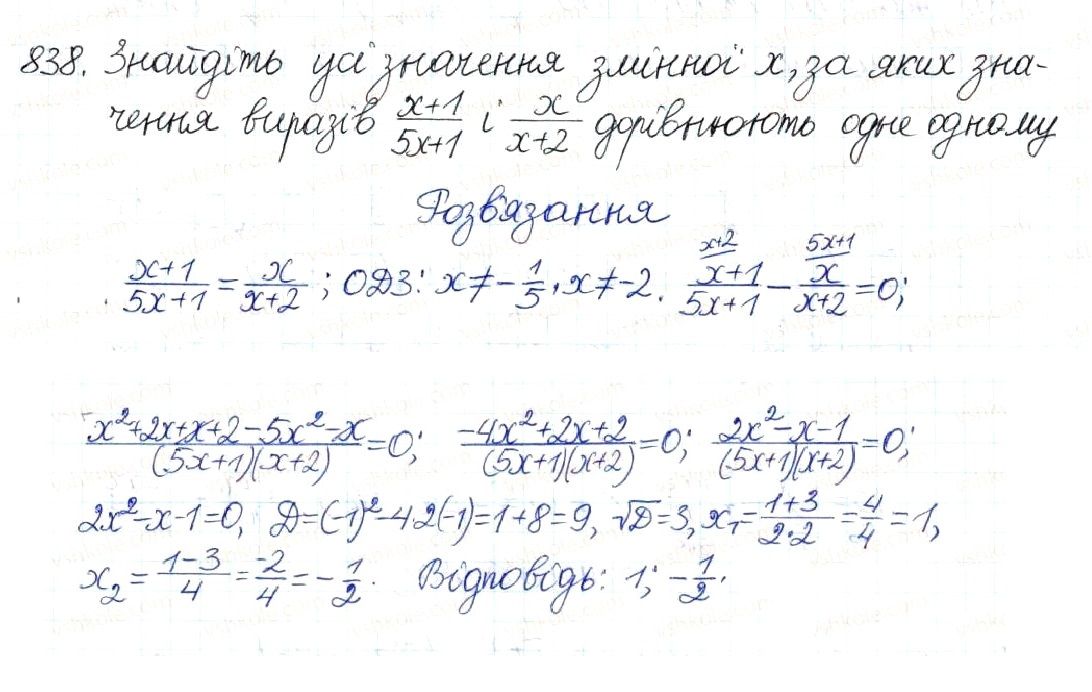 838. Знайдіть усі значення змінної x, за яких зна-
чення виразів (x+1)/(5x+1) і x/(x+2) дорівнюють одне одному
Розв'язання
(x+1)/(5x+1) = x/(x+2); ОДЗ: x ≠ -1/5, x ≠ -2. (x+1)/(5x+1) (x+2) - x/(x+2) (5x+1) = 0;
(x²+2x+x+2-5x²-x)/((5x+1)(x+2)) = 0; (-4x²+2x+2)/((5x+1)(x+2)) = 0; (2x²-x-1)/((5x+1)(x+2)) = 0;
2x²-x-1=0, Д=(-1)²-4·2(-1)=1+8=9, √Д=3, x₁=(1+3)/(2·2)=4/4=1,
x₂=(1-3)/4=-2/4=-1/2. Відповідь: 1; -1/2.